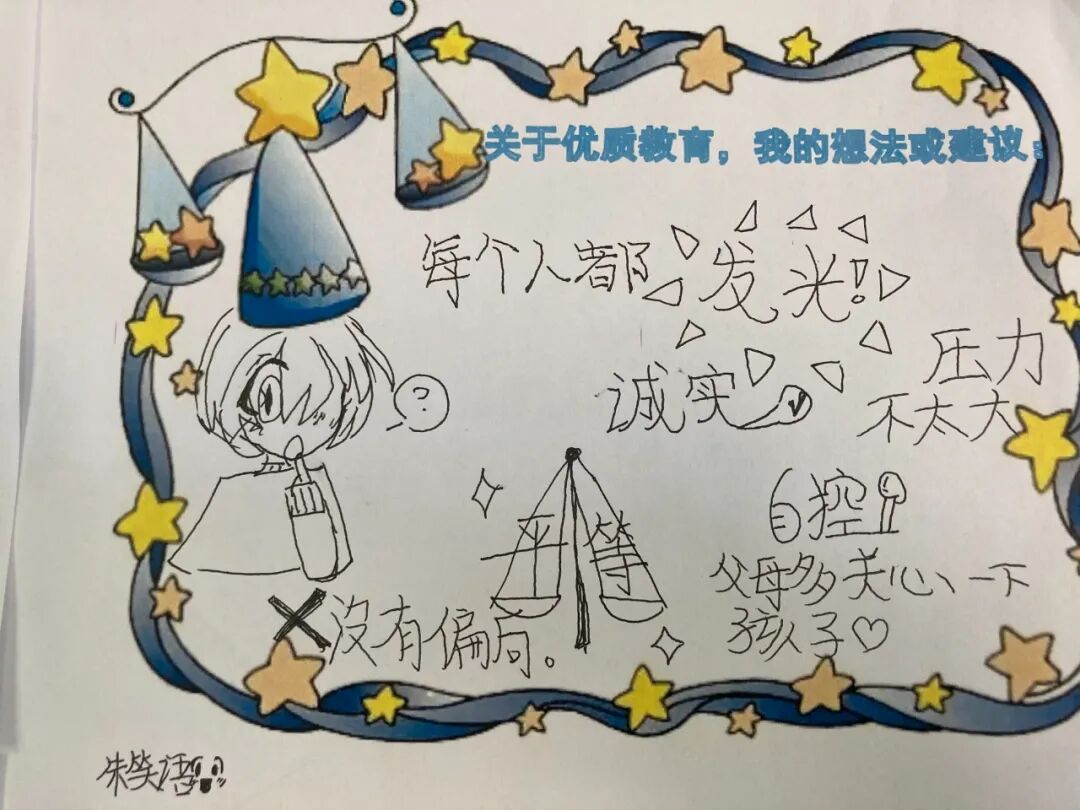 关于优质教育，我的想法或建议：
每个人都发光！
诚实
压力
不太大
?
平等
自控
父母多关心一下
孩子♡
没有偏向。
朱笑语